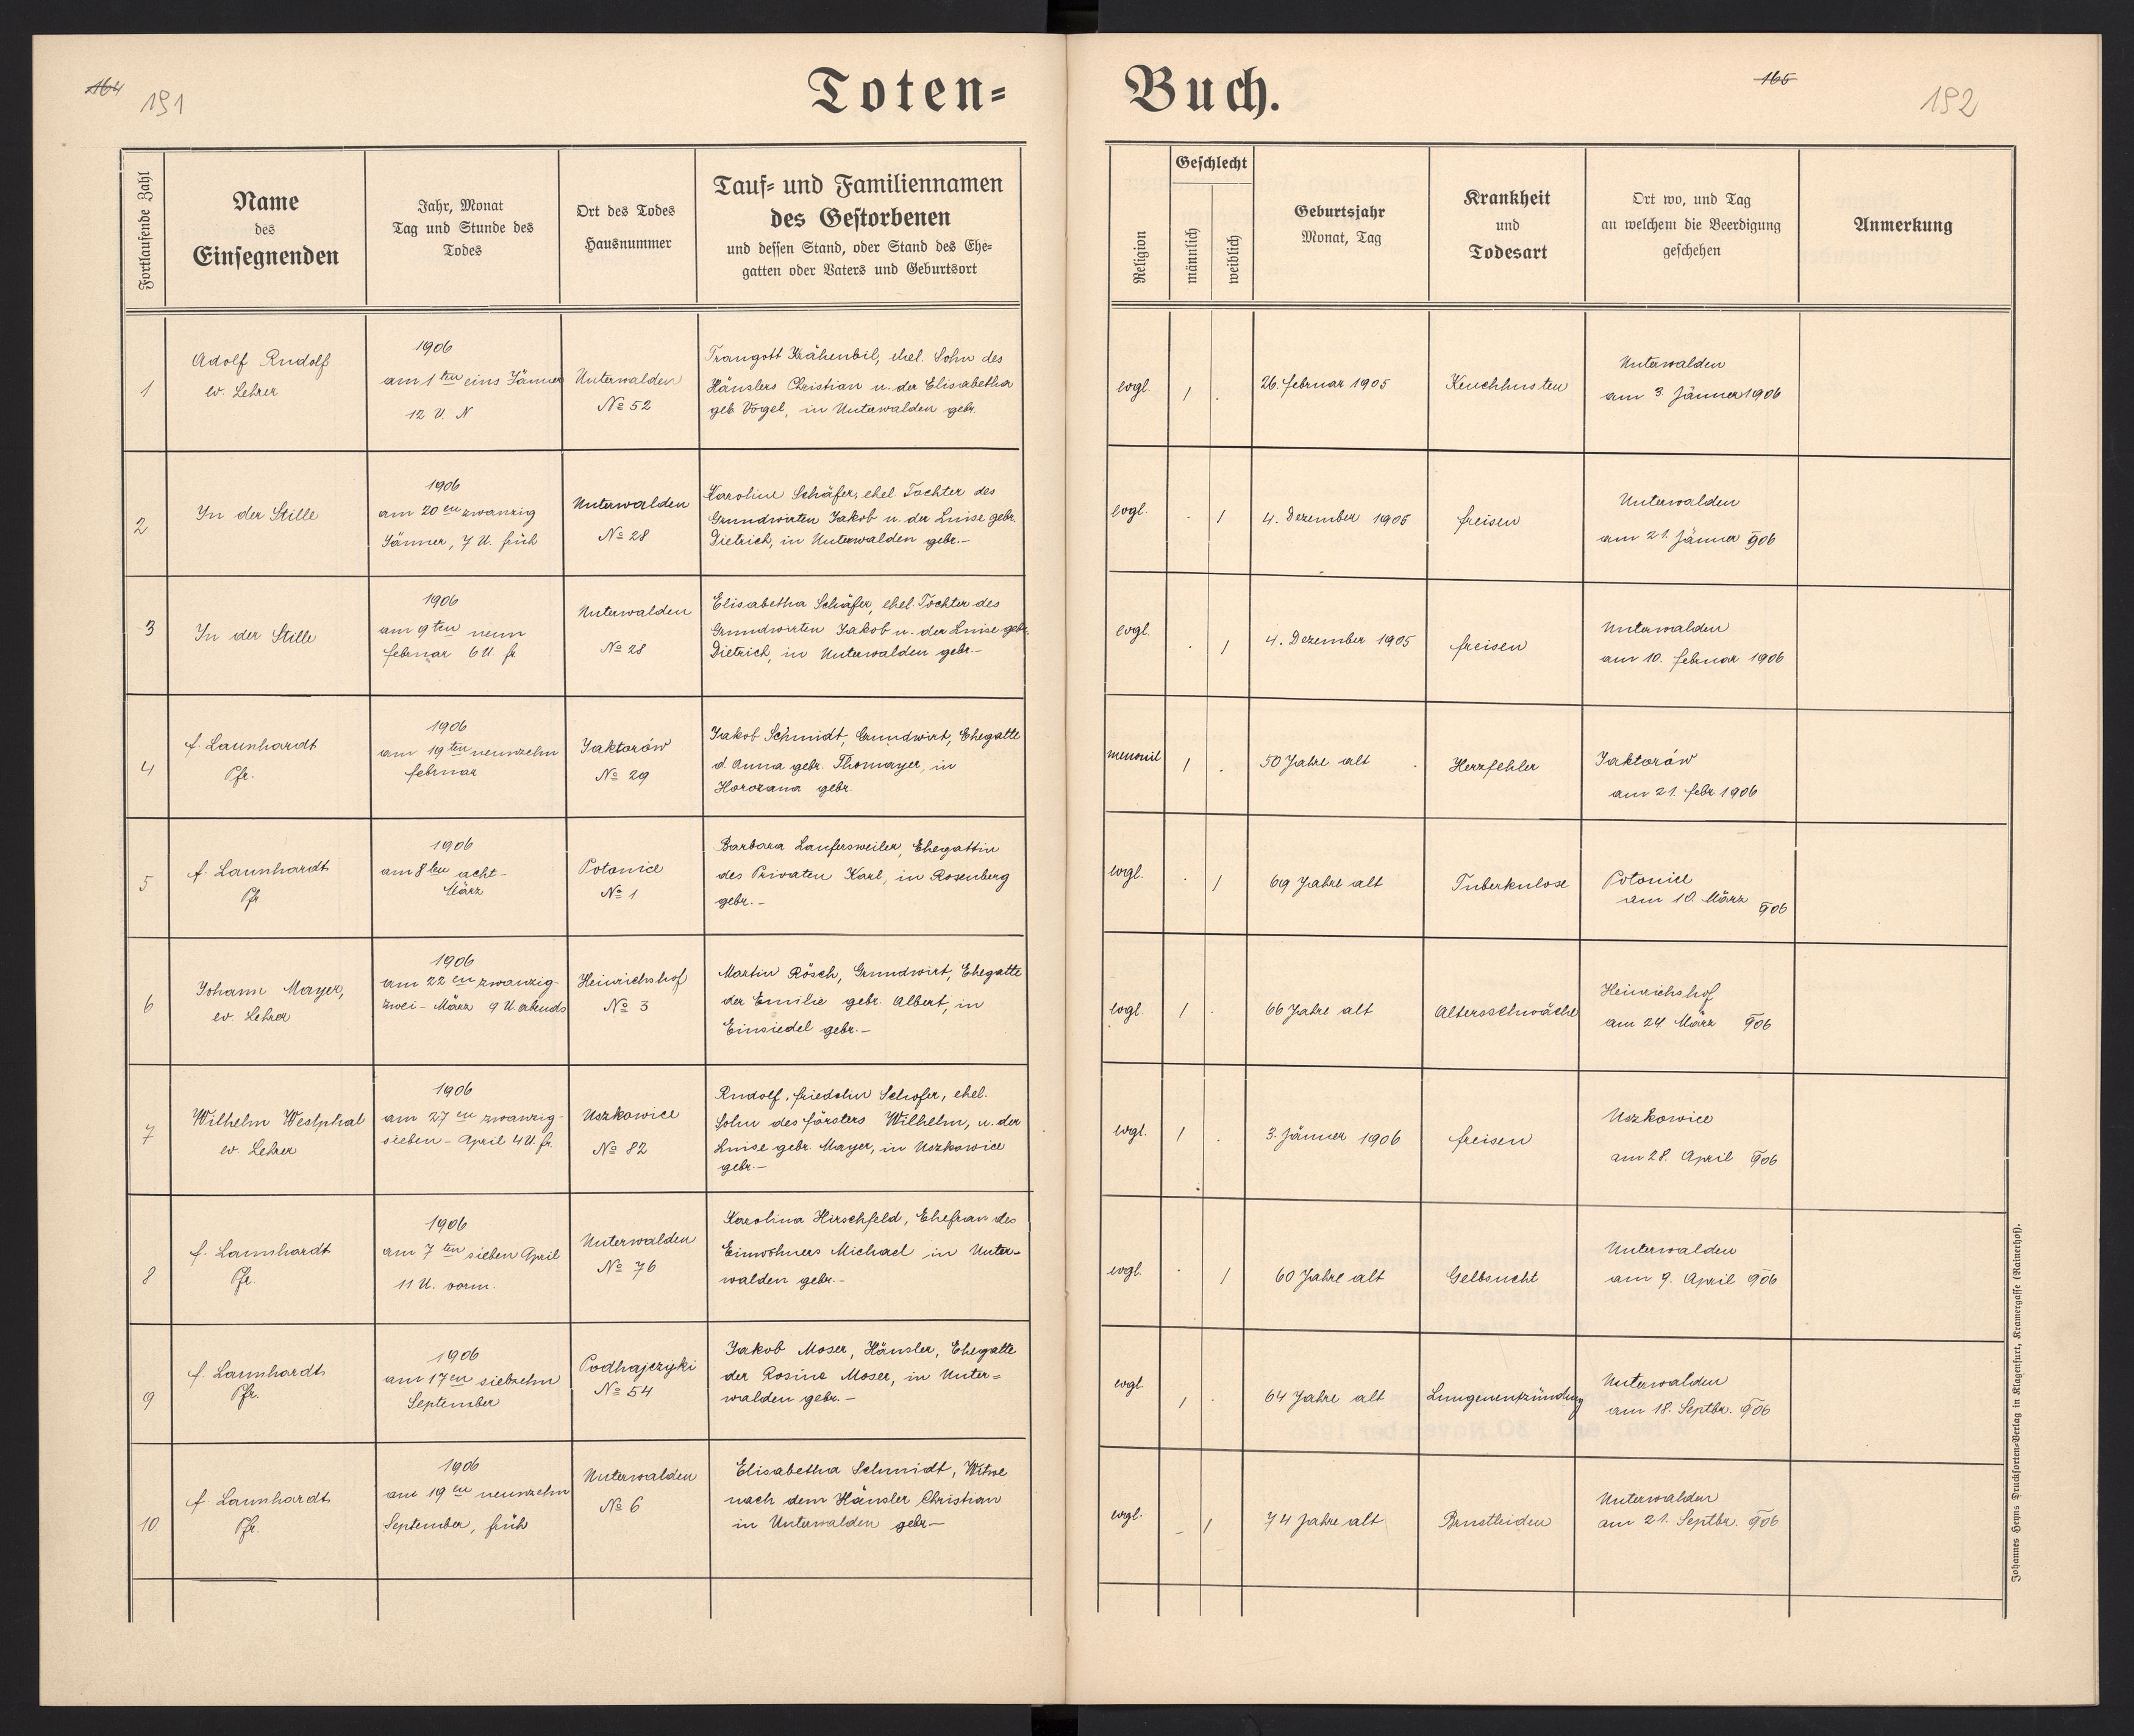 164
191
Toten=
Buch.
165
192
Fortlaufende Zahl
Name
des
Einsegnenden
Jahr, Monat
Tag und Stunde des
Todes
Ort des Todes
Hausnummer
Tauf= und Familiennamen
des Gestorbenen
und dessen Stand, oder Stand des Ehe=
gatten oder Vaters und Geburtsort
Religion
Geschlecht
männlich
weiblich
Geburtsjahr
Monat, Tag
Krankheit
und
Todesart
Ort wo, und Tag
an welchem die Beerdigung
geschehen
Anmerkung
1
Adolf Rudolf
ev. Lehrer
1906
am 1ten eins Jänner
12 U. N
Unterwalden
No 52
Traugott Krähenbil, ehel. Sohn des
Häuslers Christian u. der Elisabetha
geb. Vogel, in Unterwalden gebr.
evgl.
1 .
26. Februar 1905
Keuchhusten
Unterwalden
am 3. Jänner 1906
2
In der Stille
1906
am 20en zwanzig
Jänner, 7 U. früh
Unterwalden
No 28
Karoline Schäfer, ehel. Tochter des
Grundwirten Jakob u. der Luise gebr.
Dietrich, in Unterwalden gebr.-
evgl.
. 1
4. Dezember 1905
Freisen
Unterwalden
am 21. Jänner 906
3
In der Stille
1906
am 9ten neun
Februar 6 U. fr
Unterwalden
No 28
Elisabetha Schäfer, ehel. Tochter des
Grundwirten Jakob u. der Luise gebr.
Dietrich, in Unterwalden gebr.-
evgl.
. 1
4. Dezember 1905
Freisen
Unterwalden
am 10. Februar 1906
4
F. Launhardt
Pfr.
1906
am 19ten neunzehn
Februar
Jaktorów
No 29
Jakob Schmidt, Grundwirt, Ehegatte
d. Anna gebr. Thomayer, in
Horozana gebr.
menonit
1 .
50 Jahre alt
Herzfehler
Jaktorów
am 21. Febr 1906
5
F. Launhardt
Pfr.
1906
am 8ten acht-
März
Polonice
No 1
Barbara Laufersweiler, Ehegattin
des Privaten Karl, in Rosenberg
gebr.-
evgl.
. 1
69 Jahre alt
Tuberkulose
Polonice
am 10. März 906
6
Johann Mayer,
ev. Lehrer
1906
am 22en zwanzig-
zwei - März 9 U. abends
Heinrichshof
No 3
Martin Rösch, Grundwirt, Ehegatte
der Emilie gebr. Albert, in
Einsiedel gebr.-
evgl.
1 .
66 Jahre alt
Altersschwäche
Heinrichshof
am 24 März 906
7
Wilhelm Westphal
ev. Lehrer
1906
am 27en zwanzig-
sieben - April 4 U. fr.
Uszkowice
No 82
Rudolf, Friedolin Schofer, ehel.
Sohn des Försters Wilhelm, u. der
Luise gebr. Mayer, in Uszkowice
gebr.-
evgl.
1 .
3. Jänner 1906
Freisen
Uszkowice
am 28. April 906
8
F. Launhardt
Pfr.
1906
am 7ten sieben April
11 U. vorm.
Unterwalden
No 76
Karolina Hirschfeld, Ehefrau des
Einwohners Michael in Unter-
walden gebr.-
evgl.
. 1
60 Jahre alt
Gelbsucht
Unterwalden
am 9. April 906
9
F. Launhardt
Pfr.
1906
am 17en siebzehn
September
Podhajczyki
No 54
Jakob Moser, Häusler, Ehegatte
der Rosina Moser, in Unter=
walden gebr.-
evgl.
1 .
64 Jahre alt
Lungenentzündung
Unterwalden
am 18. Septbr. 906
10
F. Launhardt
Pfr.
1906
am 19en neunzehn
September, früh
Unterwalden
No 6
Elisabetha Schmidt, Witwe
nach dem Häusler Christian
in Unterwalden gebr-
evgl.
- 1
74 Jahre alt
Brustleiden
Unterwalden
am 21. Septbr. 906
Johannes Heyns Drucksorten=Verlag in Klagenfurt, Kramergasse (Rainerhof).